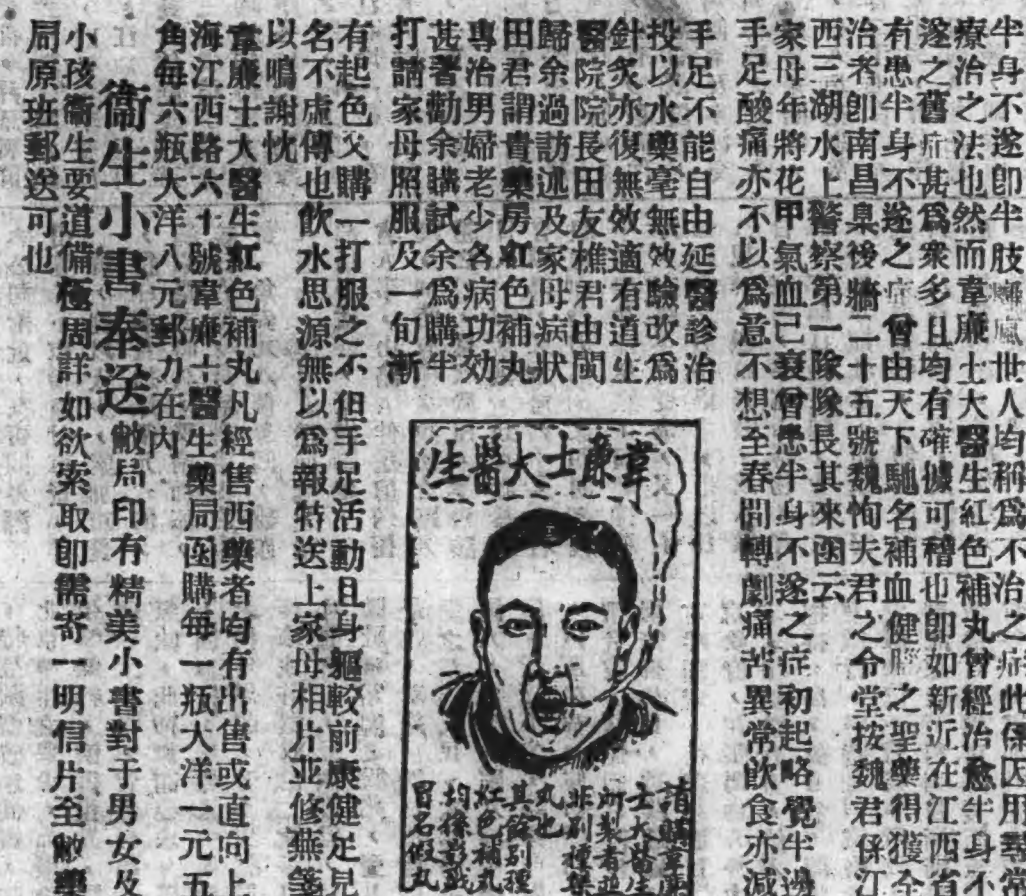 半身不遂即半肢癱瘋世人均稱爲不治之症此係因用尋常
療治之法也然而韋廉士大醫生紅色補丸曾經治愈半身不
遂之舊症甚爲衆多且均有確據可稽也即如新近在江西省
有患半身不遂之症曾由天下馳名補血健腦之聖藥得獲全
治者即南昌臬後牆二十五號魏恂夫君之令堂按魏君係江
西三湖水上警察第一隊隊長其來函云
家母年將花甲氣血已衰曾患半身不遂之症初起略覺半邊
手足酸痛亦不以爲意不想至春間轉劇痛苦異常飲食亦減
手足不能自由延醫診治
投以水藥毫無效驗改爲
針灸亦復無效適有道生
醫院院長田友樵君由閩
歸余過訪述及家母病狀
田君謂貴藥房紅色補丸
專治男婦老少各病功効
甚著勸余購試余爲購半
打請家母照服及一旬漸
韋廉士大醫生
請購韋廉
士大醫生
所製者並
非別種藥
丸也
其餘別種
紅色補丸
均係影戤
冒名假丸
有起色又購一打服之不但手足活動且身軀較前康健足見
名不虛傳也飲水思源無以爲報特送上家母相片並修蕪箋
以鳴謝忱
韋廉士大醫生紅色補丸凡經售西藥者均有出售或直向上
海江西路六十號韋廉士醫生藥局函購每一瓶大洋一元五
角每六瓶大洋八元郵力在內
衞生小書奉送 敝局印有精美小書對于男女及
小孩衞生要道備極周詳如欲索取即需寄一明信片至敝藥
局原班郵送可也